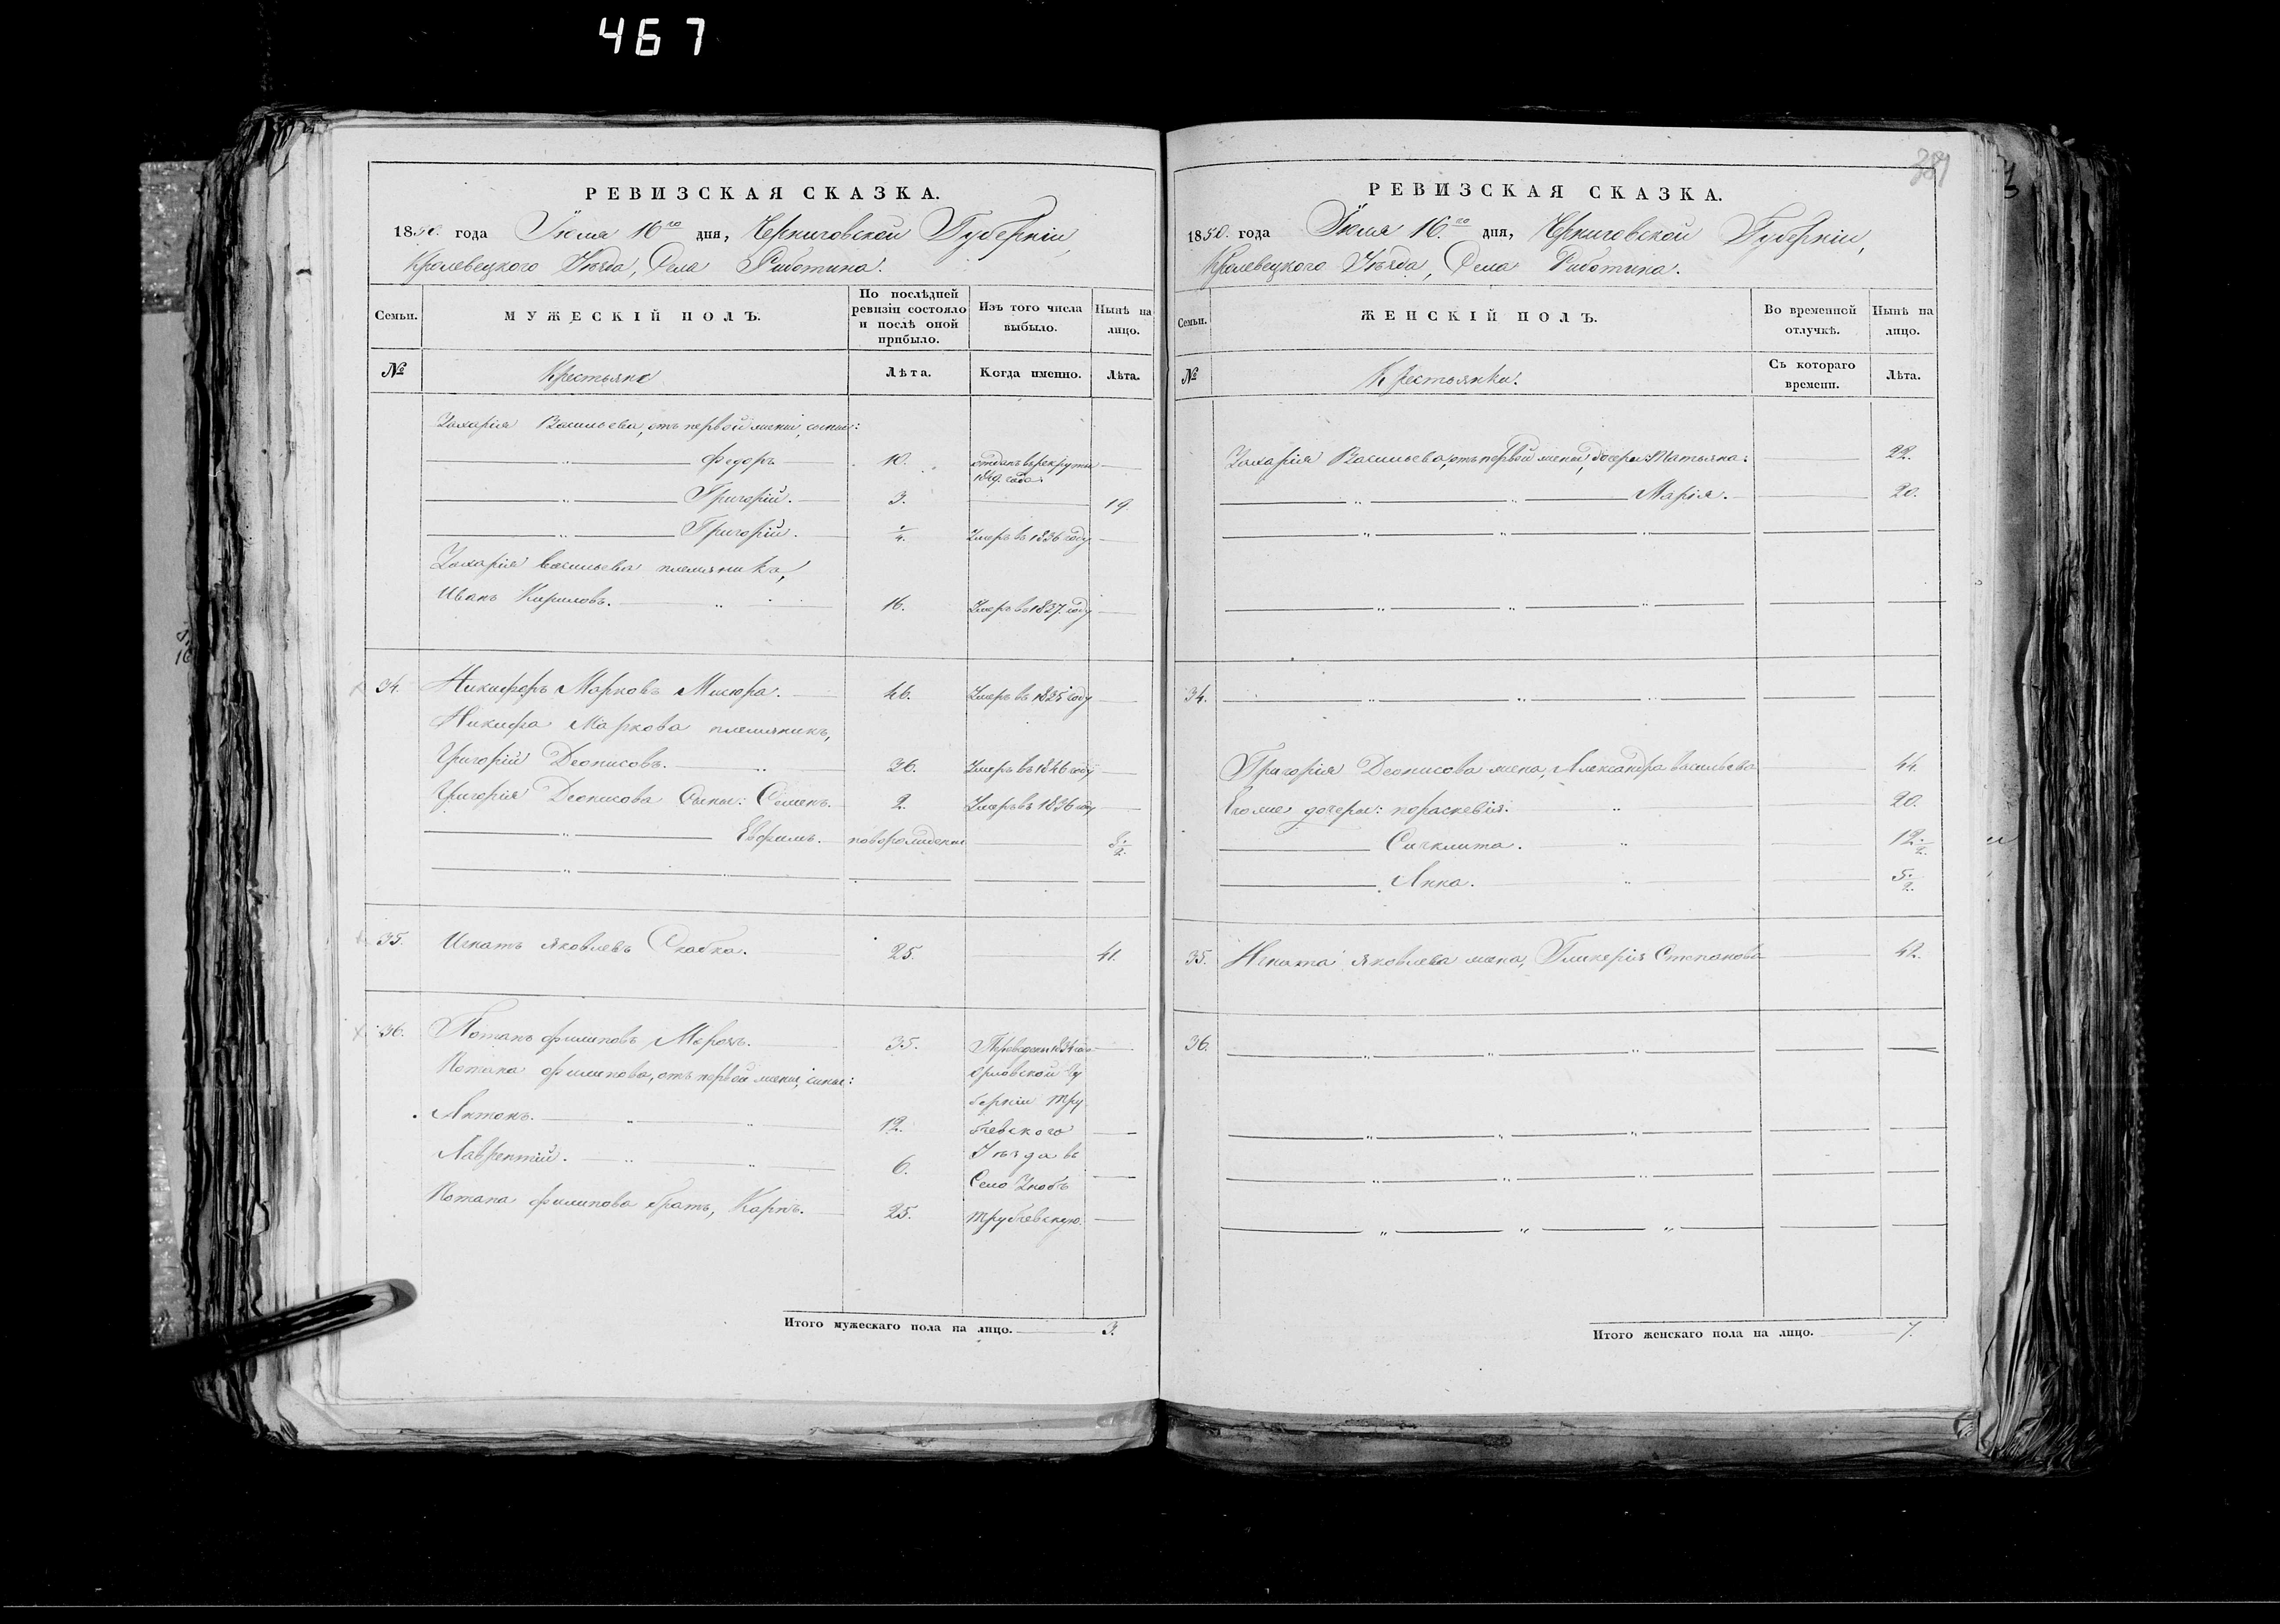 467
РЕВИЗСКАЯ СКАЗКА.
1850. года Іюля 16го дня, Черниговской Губерніи,
Кролевецкого Уѣзда, Села Риботина.
Семьи.
МУЖЕСКІЙ ПОЛЪ.
По послѣдней ревизіи состояло и послѣ оной прибыло.
Изъ того числа выбыло.
Нынѣ на лицо.
№
Крестьяне
Лѣта.
Когда именно.
Лѣта.
Захарія Васильева, отъ первой жены, сыны:
Федоръ 10. отданъ въ рекруты
1849. года.
Григорій. 3. 19
Григорій. 1/4. Умеръ въ 1836 году
Захарія Васильева племяника,
Иванъ Кириловъ. 16. Умеръ въ 1837. году
34. Никифоръ Марковъ Мисюра. 46. Умеръ въ 1835 году
Никифра Маркова племяникъ,
Григорій Деонисовъ. 26. Умеръ въ 1846 году
Григорія Деонисова Сыны: Семенъ. 2. Умеръ въ 1836 году
Евфимъ. новорожденъ
35. Игнатъ Яковлевъ Скабка. 25. 41.
36. Потапъ Филиповъ Морозъ. 35. Переведены 1834 года
Потапа Филипова, отъ первой жены, сыны: Орловской гу
берніи Тру
Антонъ. 12. бчевского
Лаврентій. 6. Уѣзда въ
Село Зноб
Потапа Филипова братъ, Карпъ. 25. Трубчевскую.
Итого мужескаго пола на лицо. 3.
РЕВИЗСКАЯ СКАЗКА.
1850. года Іюля 16.го дня, Черниговской Губерніи,
Кролевецкого Уѣзда, Села Риботина.
Семьи.
ЖЕНСКІЙ ПОЛЪ.
Во временной отлучкѣ.
Нынѣ на лицо.
№
Крестьянки.
Съ котораго времени.
Лѣта.
Захарія Васильева, отъ первой жены, дочери: Татьяна. 22.
Марія. 20.
34.
Григорія Деонисова жена, Александра Васильева 44.
Егоже дочери: Пераскевія. 20.
Сигклита. 12. 1/2.
Анна. 5. 1/2.
35. Игната Яковлева жена, Гликерія Степанова 42.
36.
Итого женскаго пола на лицо. 7.